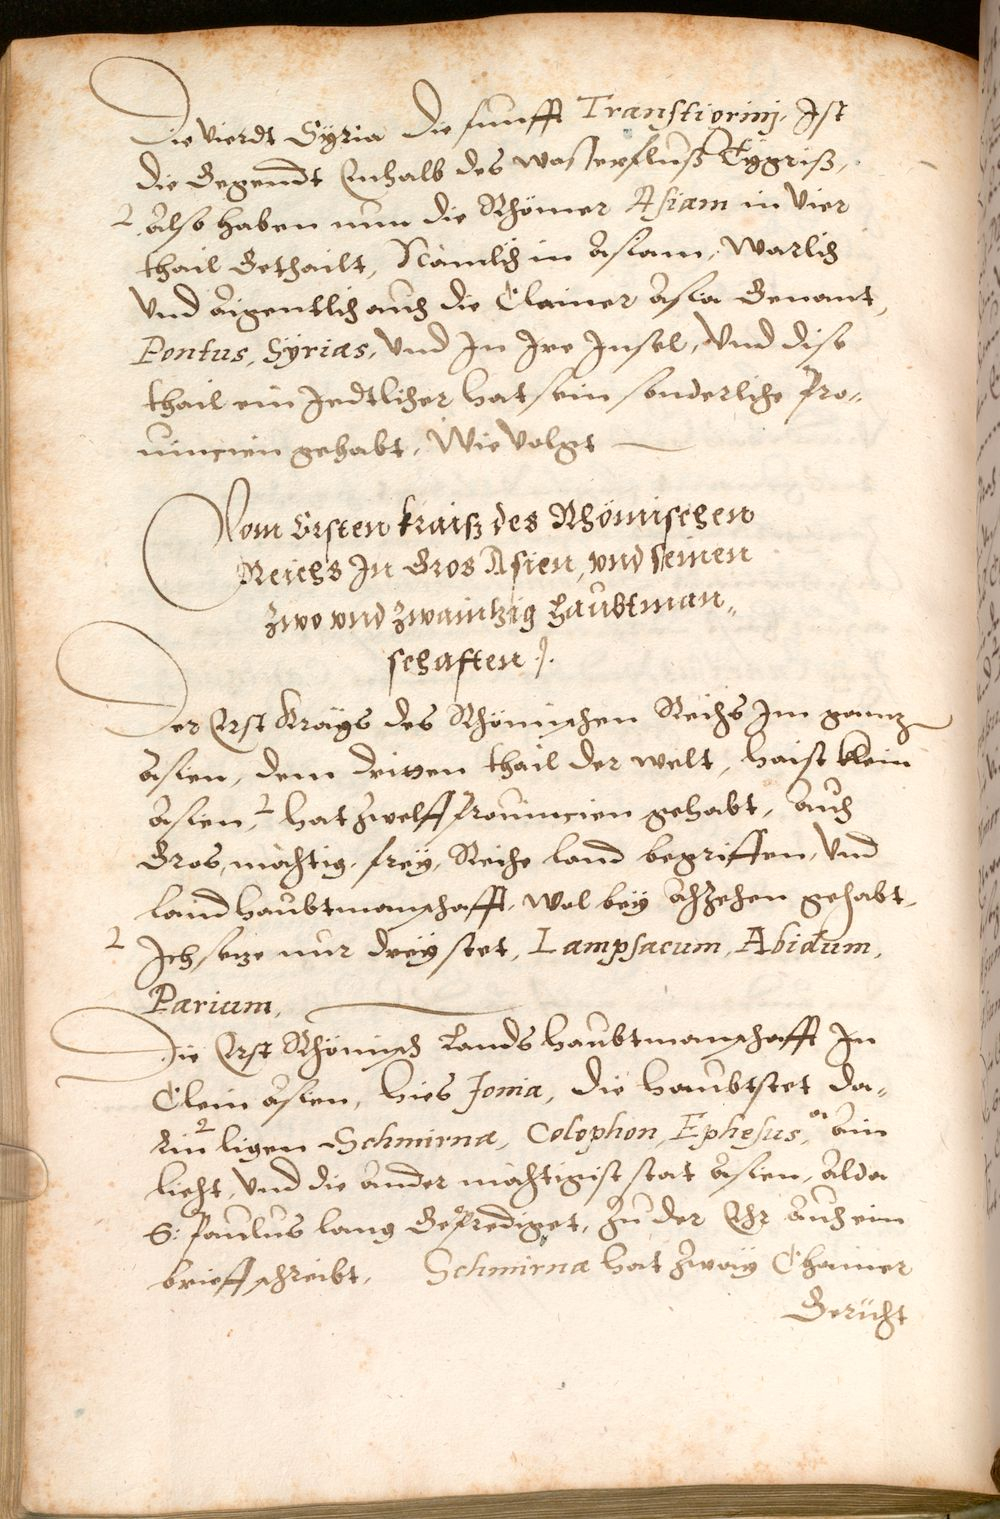 Die Vierdt Sÿria Die funfft Transtigrinj, Ist
die Gegendt Enhalb des wasserfluß Tÿgriß,
Also haben nun die Rhömer Asiam in Vier
thail Gethailt, Nämlich in Asiam, Warlich
Und Aigentlich auch die Clainer Asia Genant,
Pontus, Sÿrias, Und In Ire Insel, Und dise
thail ein Iedtlicher hat sein sonderliche Pro„
uincien gehabt, Wie Volgt
Vom Ersten kraiß des Rhömischen
Reichs In Gros Asien, und seinen
zwo und zwaintzig Haubtman„
schaften /.
Der Erst Krays des Rhömischen Reichs Im gantz
Asien, dem dritten thail der welt, haist klein
Asien, hat Zwelff Prouincien gehabt, Auch
Gros, mächtig, freÿ, Reiche land begriffen, Und
landhaubtmanschafft, Wol beÿ Achzehen gehabt,
Ich setze nur dreÿ stet, Lampsacum, Abidum,
Parium,
Die Erst Rhömisch Landshaubtmanschafft In
Clein Asien, hies Jonia, die haubtstet da„
rin ligen Schmirna, Colophon, Ephesus, Ain
liecht, Und die Ander mächtigist stat Asien, Alda
S: Paulus lang Geprediget, Zu der Ehr Auch ein
brieff schreibt, Schmirna hat Zwaÿ
Gerücht